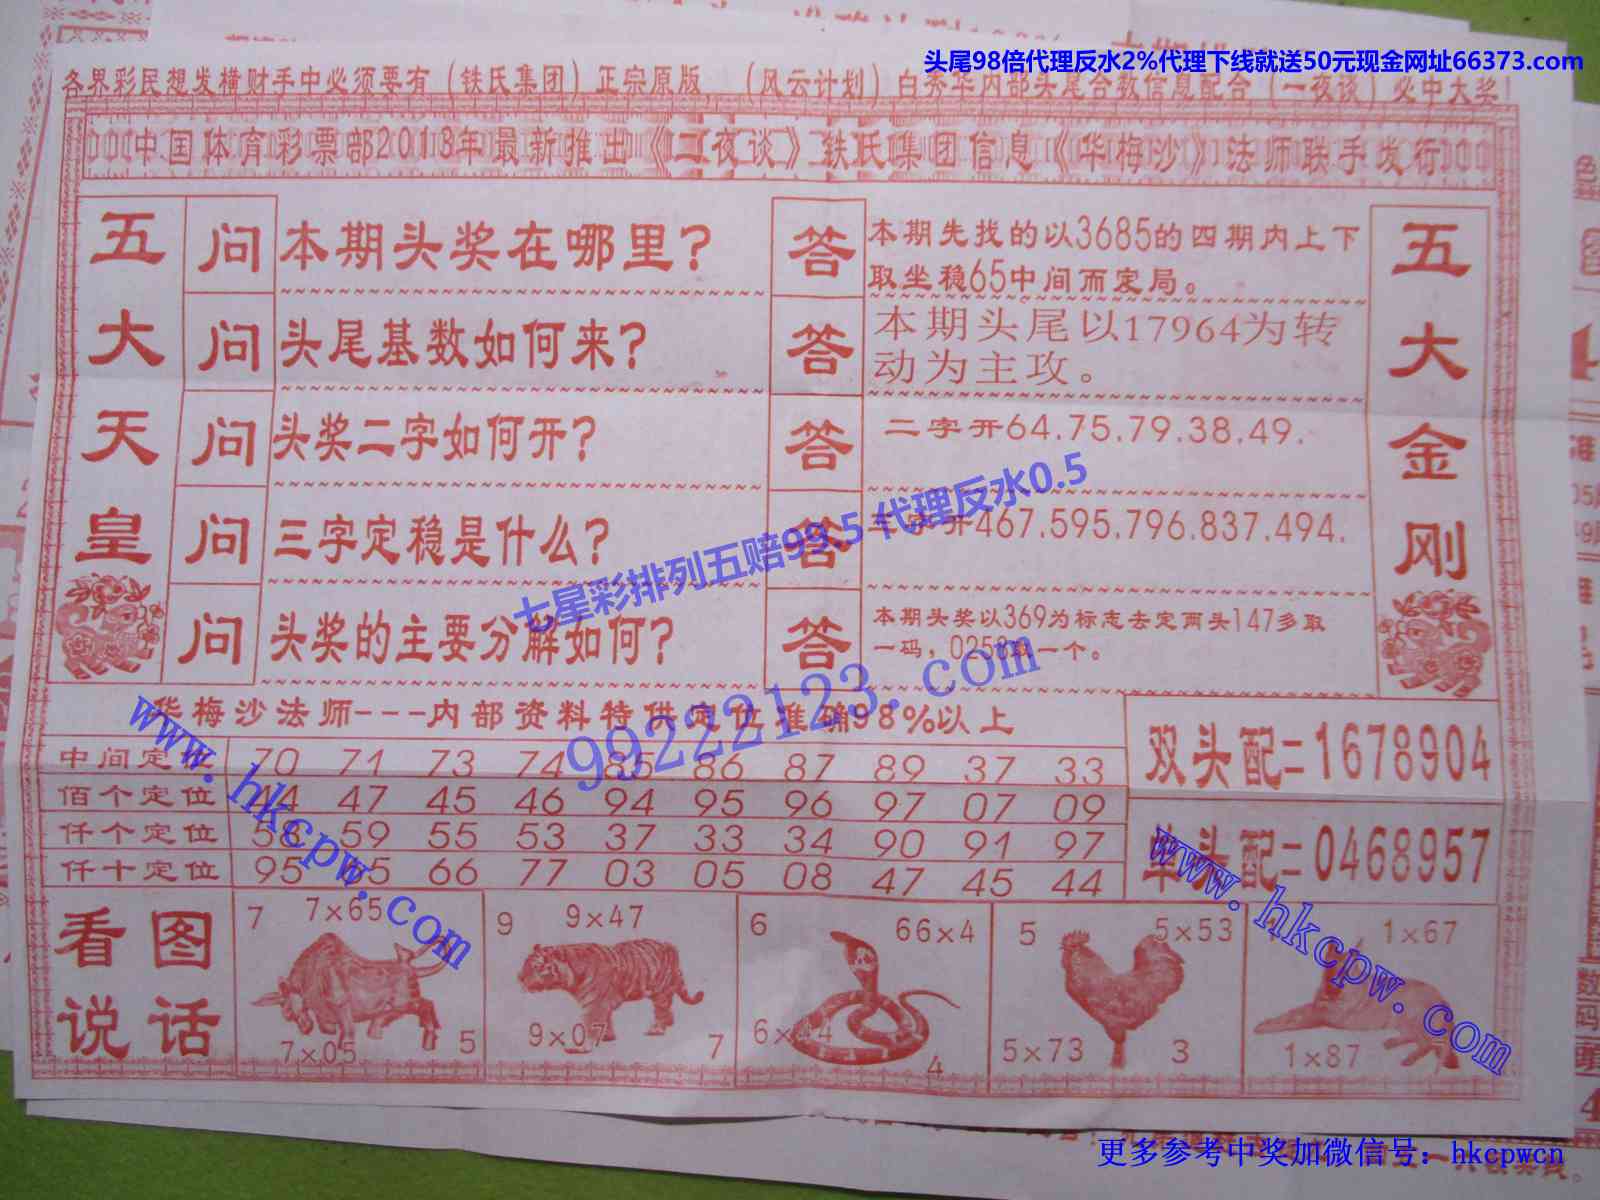 头尾98倍代理反水2%代理下线就送50元现金网址66373.com
各界彩民想发横财手中必须要有（铁氏集团）正宗原版，（风云计划）白秀华内部头尾合数信息配合（一夜谈）必中大奖！
中国体育彩票部2013年最新推出《二夜谈》铁氏集团信息《华梅沙》法师联手发行
五大天皇
问 本期头奖在哪里?
答 本期先找的以3685的四期内上下
取坐稳65中间而定局。
问 头尾基数如何来?
答 本期头尾以17964为转
动为主攻。
问 头奖二字如何开?
答 二字开64.75.79.38.49.
问 三字定稳是什么?
答 三字开467.595.796.837.494.
问 头奖的主要分解如何?
答 本期头奖以369为标志去定两头147多取
一码，0258取一个。
五大金刚
七星彩排列五赔99.5代理反水0.5
99222123.com
华梅沙法师---内部资料特供定位准确98%以上
中间定位 70 71 73 74 85 86 87 89 37 33
佰个定位 44 47 45 46 94 95 96 97 07 09
仟个定位 58 59 55 53 37 33 34 90 91 97
仟十定位 95 65 66 77 03 05 08 47 45 44
双头配二1678904
单头配二0468957
www.hkcpw.com
www.hkcpw.com
看图
说话
7 7×65
7×05 5
9 9×47
9×07 7
6 66×4
6×44 4
5 5×53
5×73 3
1×67
1×87
更多参考中奖加微信号：hkcpwcn